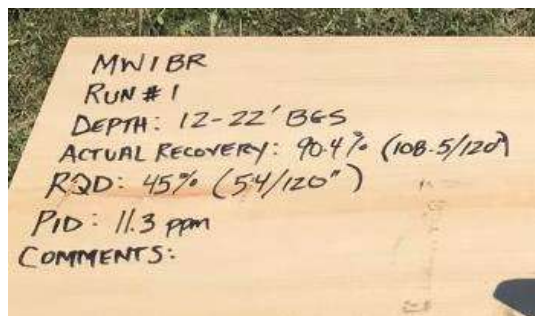 MW1BR
RUN # 1
DEPTH: 12-22' BGS
ACTUAL RECOVERY: 90.4% (108.5/120")
RQD: 45% (54/120")
PID: 11.3 ppm
COMMENTS: